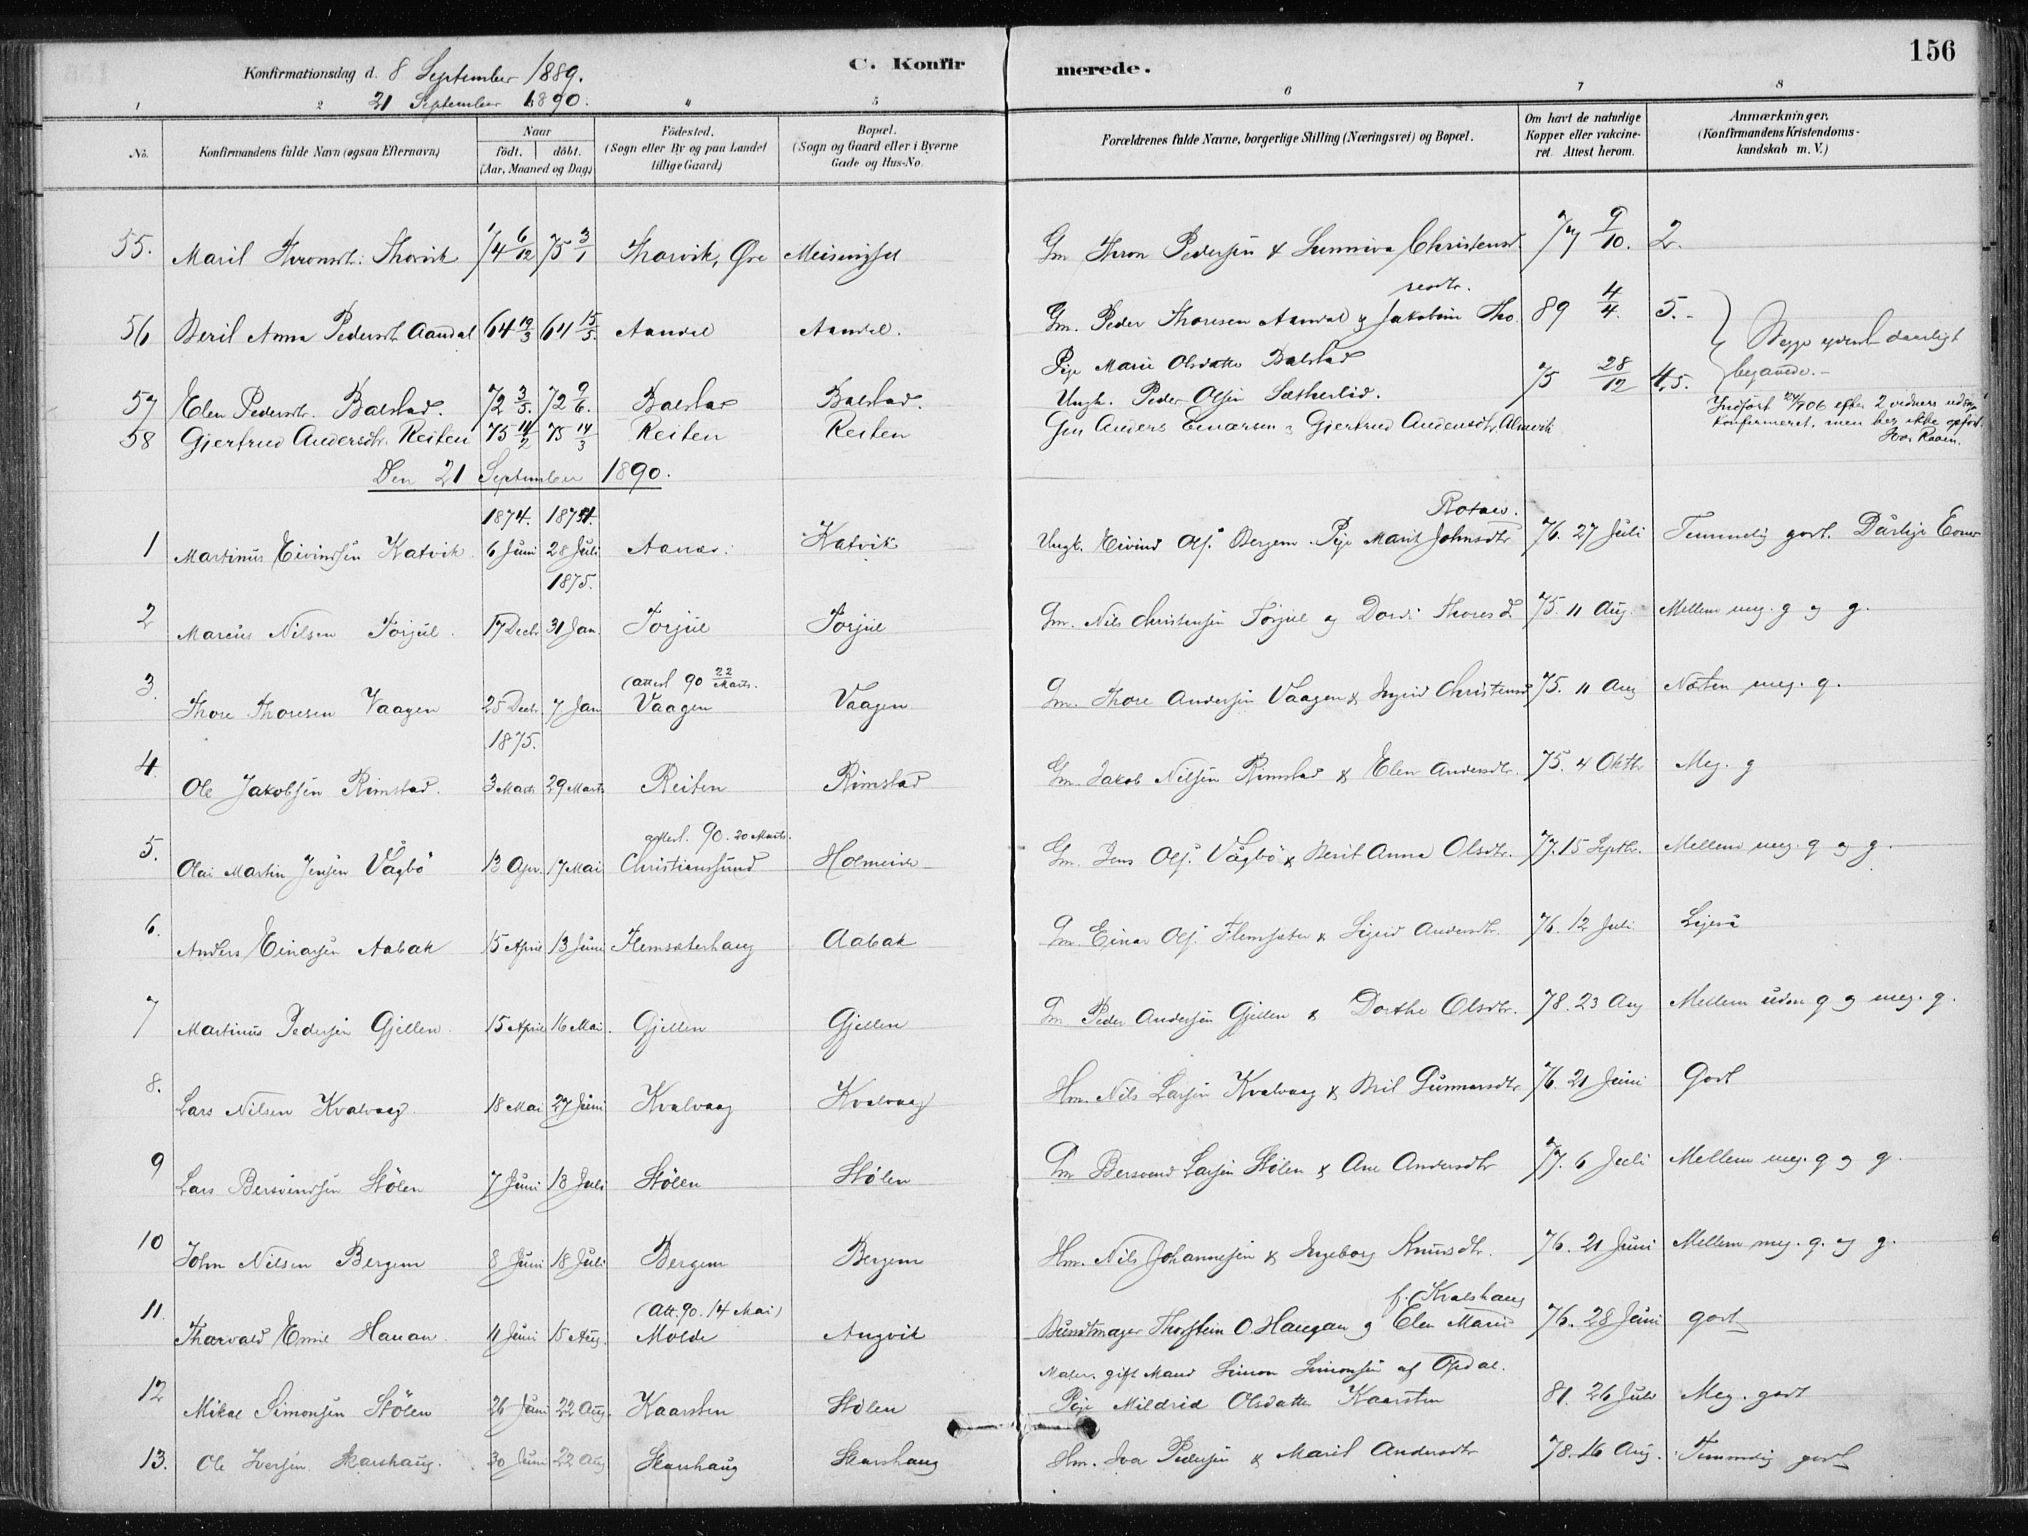 156
Konfirmationsdag d. 8 September 1889.
21 September 1890.
C. Konfirmerede.
1 2 4 5 6 7 8
No. Konfirmandens fulde Navn (ogsaa Efternavn) Naar födt. döbt. (Aar, Maaned og Dag) Födested. (Sogn eller By og paa Landet tillige Gaard) Bopæl. (Sogn og Gaard eller i Byerne Gade og Hus-No. Forældrenes fulde Navne, borgerlige Stilling (Næringsvei) og Bopæl. Om havt de naturlige Kopper eller vakcineret. Attest herom. Anmærkninger. (Konfirmandens Kristendomskundskab m. V.)
55. Marit Thronsdt. Thorvik 74 6/12 75 3/1 Thorvik, Øre Meisingset Gm Thron Pedersen & Sunniva Christensd. 77 9/10. 2.
resdtr.
56 Berit Anna Pedersdt. Aandal 64 19/3 64 15/5. Aandal Aandal. Gm. Peder Thoresen Aandal & Jakobine Tho 89 4/4. 5.- Begge yderst daarligt
Pige Marie Olsdatter Balstad
57 Elen Pedersdtr. Balstad. 72 3/5. 72 9/6. Balstad Balstad. Ungk. Peder Olsen Sætherlid. 75 28/12 4,5. begavede.-
58 Gjertrud Andersdtr. Reiten 75 14/2 75 14/3 Reiten Reiten Gm Anders Einarsen & Gjertrud Andersdtr. Alnvik Indført /06 efter 2 vidners udsagn
konfirmeret, men her ikke opført.
Ivar Raaen.
Den 21 September 1890.
1874. 1874. Rotaas.
1 Martinus Eivindsen Katvik 6 Juni 28 Juli Aanæs. Katvik Ungk. Eivind Ols. Bergem. Pige Marit Johnsdtr 76. 27 Juli Temmelig godt. Dårlige Evner
1875.
2 Marcus Nilsen Torjul. 17 Decbr 31 Jan. Torjul Torjul Gm. Nils Christensen Torjul og Dordi Thoresd. 75. 11 Aug. Mellem meg. g og g.
(attest 90 22/Marts.
3. Thore Thoresen Vaagen 25 Decbr. 7 Jan Vaagen Vaagen Gm. Thore Andersen Vaagen & Ingrid Christensd 75. 11 Aug Næsten meg. g.
1875.
4. Ole Jakobsen Rimstad. 3 Marts 29 Marts Reiten Rimstad Gm. Jakob Nilsen Rimstad & Elen Andersdtr. 75. 4 Oktbr Meg. g
attest. 90. 20 Marts.
5. Olai Martin Jensen Vågbö 13 Apr. 17 Mai Christianssund Holmeide Gm. Jens Ols. Vågbö & Berit Anna Olsdtr. 77. 15 Septbr. Mellem meg. g og g.
6. Anders Einarsen Aabak 15 April 13 Juni Flemsæterhaug Aabak Gm. Einar Ols. Flemsæter & Sigrid Andersdtr. 76. 12 Juli Ligeså
7 Martinus Pedersen Gjellen. 15 April 16 Mai. Gjellen Gjellen Gm Peder Andersen Gjellen & Dorthe Olsdtr. 78. 23 Aug Mellem uden g og meg. g.
8. Lars Nilsen Kvalvaag. 18 Mai 27 Juni Kvalvaag Kvalvaag Hm. Nils Larsen Kvalvaag & Brit Gunnarsdtr 76. 21 Juni Godt
9 Lars Bersvendsen Stölen 7 Juni 18 Juli Stölen Stölen Gm Bersvend Larsen Stölen & Ane Andersdtr 77. 6 Juli Mellem meg. g og g.
10 John Nilsen Bergem 8 Juni 18 Juli Bergem Bergem Hm. Nils Johannesen & Ingeborg Knudsdtr. 76. 21 Juni Mellem meg. g. og g.
(att. 90. 14 Mai) f. Kvalshaug
11. Thorvald Emil Hauan. 11 Juni 15 Aug. Molde Angvik Bundtmager Thorstein O. Haugan og Elen Marie 76. 28 Juni godt
Maler. gift Mand Simon Simonsen af Opdal.
12 Mikal Simonsen Stölen 26 Juni 22 Aug. Kaarsten Stölen Pige Mildrid Olsdatter Kaarsten 81. 26 Juli Meg. godt
13. Ole Iversen Skarshaug. 30 Juni 22 Aug Skarshaug Skarshaug Hm. Iver Pedersen & Marit Andersdtr 78. 16 Aug. Temmelig godt